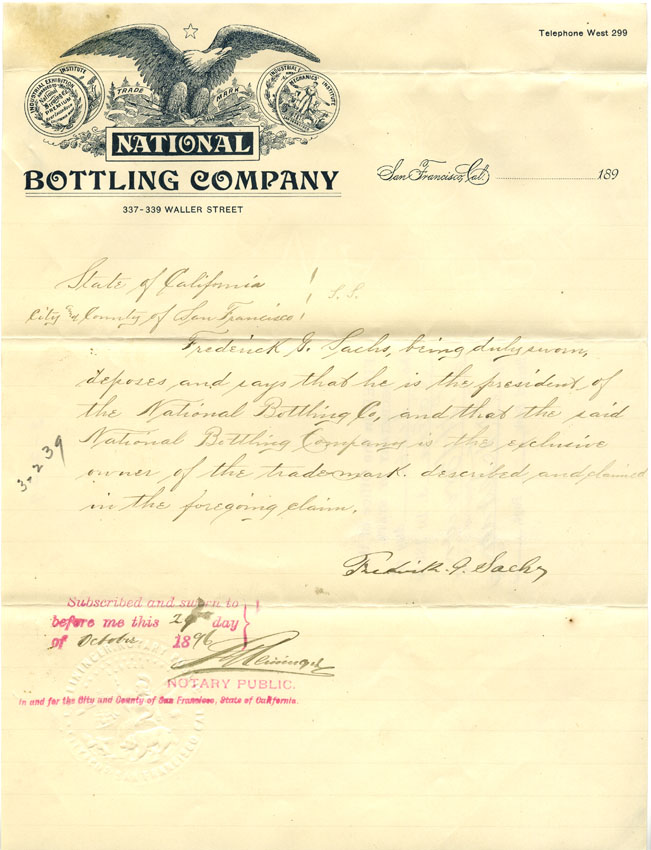 Telephone West 299
INSTITUTE
INDUSTRIAL EXHIBITION
PREMIUM
TRADE MARK
MECHANICS' INSTITUTE
NATIONAL
BOTTLING COMPANY
337-339 WALLER STREET
San Francisco, Cal. 189
State of California
S.S.
City and County of San Francisco
Frederick G. Sachs, being duly sworn,
deposes and says that he is the president of
the National Bottling Co, and that the said
National Bottling Company is the exclusive
owner of the trademark. described and claimed
in the foregoing claim.
3-239
Fredrick. G. Sachs
Subscribed and sworn to
before me this day
of October 1896
NOTARY PUBLIC.
In and for the City and County of San Francisco, State of California.